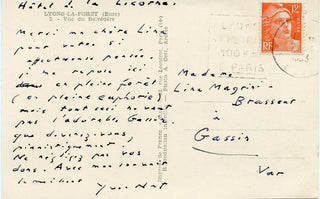 Hôtel à la Licorne.
LYONS-LA-FORET (Eure)
2. - Vue du Belvédère
Merci ma chère Lina
pour votre si
affectueuse pensée.
je me repose ici
en pleine forêt
(en pleine euphorie)
mais tout ceci ne vaut
pas l'adorable Gassin.
que devenez-vous,
pianistiquement
Ne négligez pas vos
dons. Avec mon souvenir
le meilleur
Yves Nat
12F
RF
100 KM
PARIS
Madame
Lina Magrini-
Brassent
à
Gassin
Var